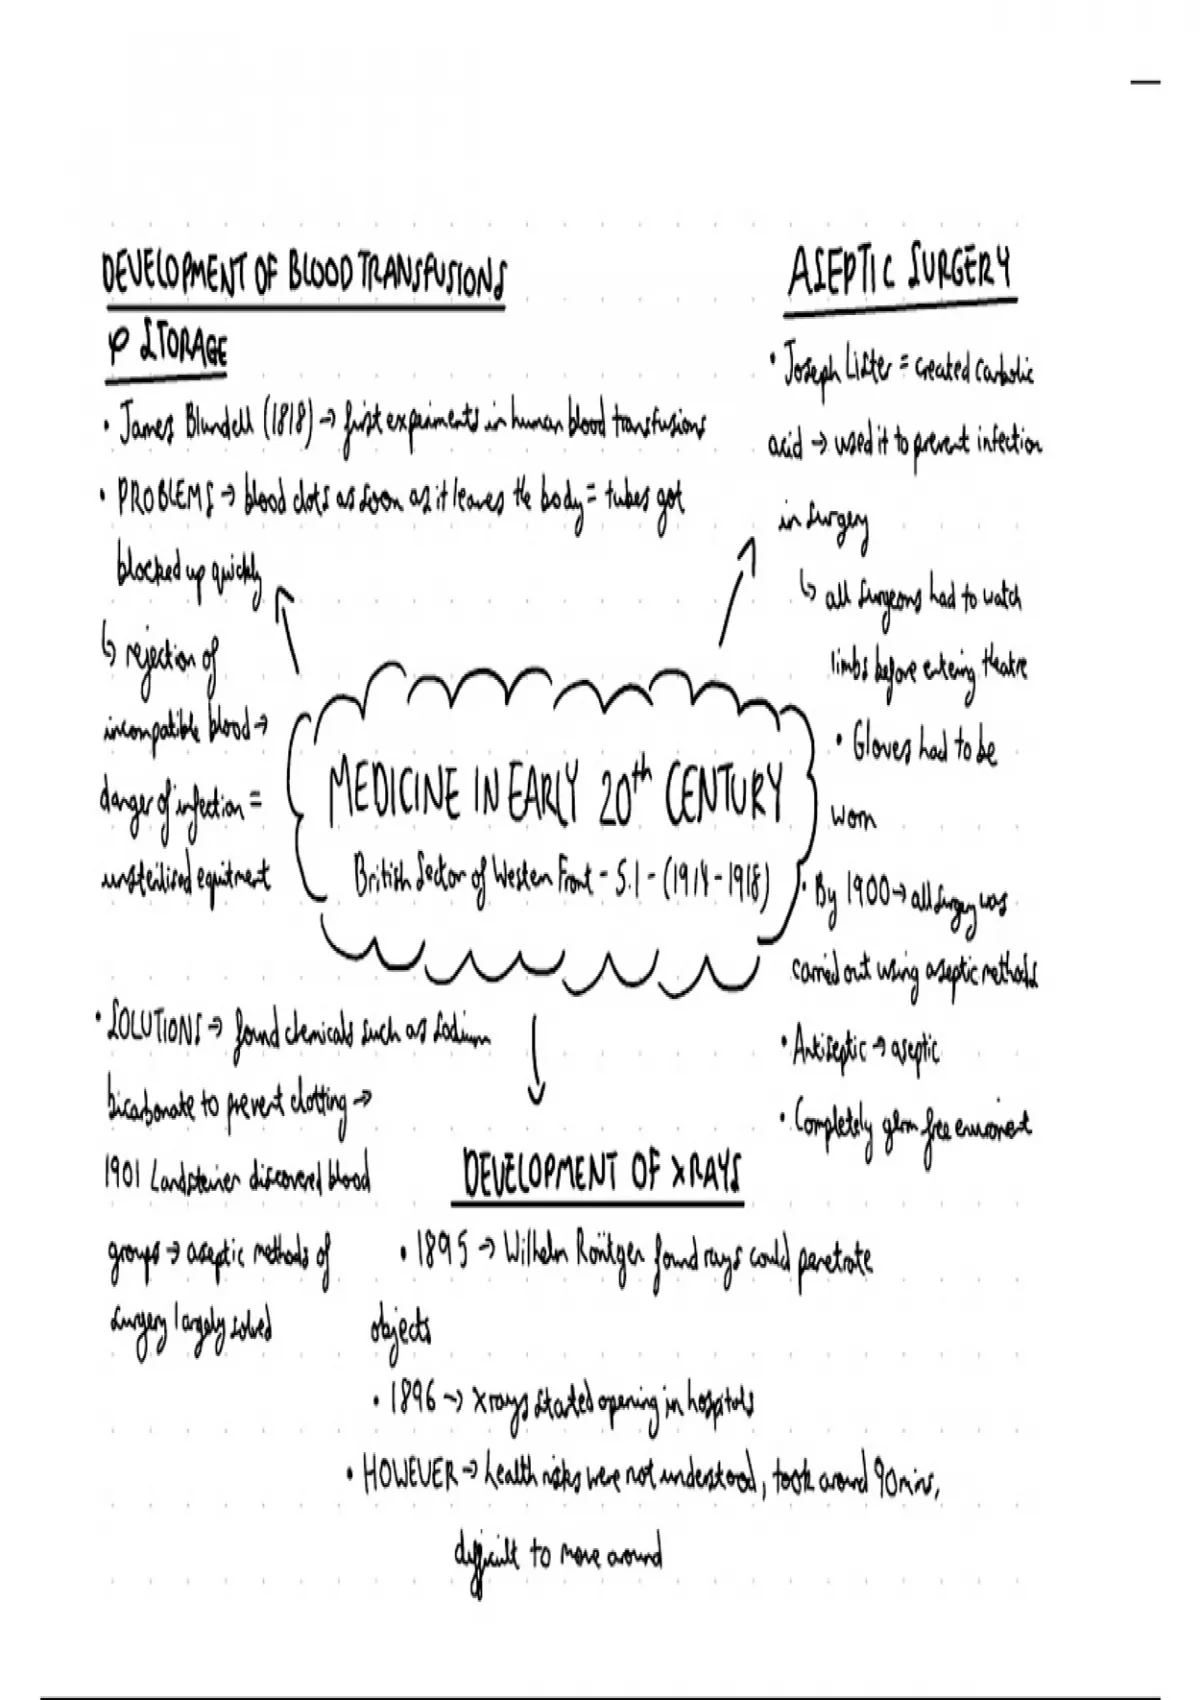 DEVELOPMENT OF BLOOD TRANSFUSIONS
& STORAGE
• James Blundell (1818) → first experiments in human blood transfusions
• PROBLEMS → blood clots as soon as it leaves the body = tubes got
blocked up quickly
↳ rejection of
incompatible blood →
danger of infection =
unsterilised equitment
• SOLUTIONS → found chemicals such as sodium
bicarbonate to prevent clotting →
1901 Landsteiner discovered blood
groups → aseptic methods of
surgery largely solved
ASEPTIC SURGERY
• Joseph Lister = created carbolic
acid → used it to prevent infection
in surgery
↳ all surgeons had to watch
limbs before entering theatre
• Gloves had to be
worn
• By 1900 → all surgery was
carried out using aseptic methods
• Antiseptic → aseptic
• Completely germ free enviroment
MEDICINE IN EARLY 20th CENTURY
British Sector of Western Front - S.1 - (1914-1918)
DEVELOPMENT OF XRAYS
• 1895 → Wilhelm Röntgen found rays could penetrate
objects
• 1896 → Xrays started opening in hospitals
• HOWEVER → health risks were not understood, took around 90mins,
difficult to move around